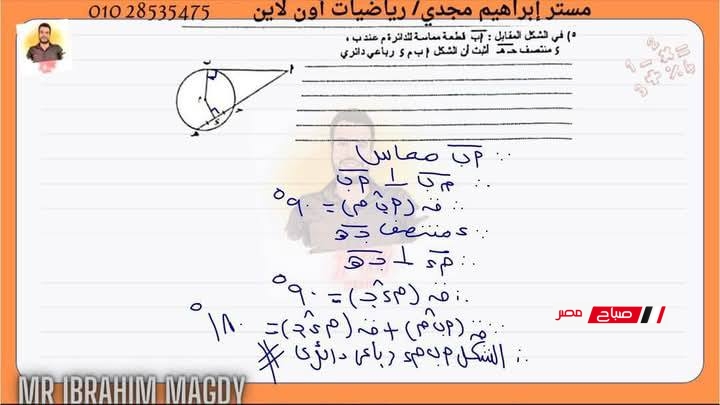 مستر إبراهيم مجدي/ رياضيات اون لاين 010 28535475
٥) في الشكل المقابل : أب قطعة مماسة للدائرة م عند ب ،
ء منتصف جـ هـ أثبت أن الشكل أ ب م ء رباعي دائري
ب
أ
م
جـ
ء
هـ
∵ أب مماس
∴ مب ⊥ أب
∴ ق (أب̂م) = ٩٠°
∵ ء منتصف جـهـ
∴ مء ⊥ جـهـ
∴ ق (مء̂جـ) = ٩٠°
∴ ق (أب̂م) + ق (مء̂جـ) = ١٨٠°
∴ الشكل أب مء رباعى دائرى #
صباح مصر
MR IBRAHIM MAGDY